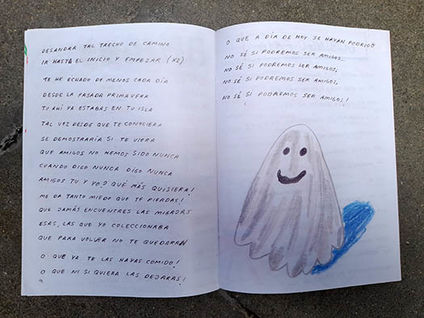 DESANDAR TAL TRECHO DE CAMINO
IR HASTA EL INICIO Y EMPEZAR (X2)
TE HE ECHADO DE MENOS CADA DÍA
DESDE LA PASADA PRIMAVERA
TÚ AHÍ YA ESTABAS EN TU ISLA
TAL VEZ DESDE QUE TE CONOCIERA
SE DEMOSTRARÍA SI TE VIERA
QUE AMIGOS NO HEMOS SIDO NUNCA
CUANDO DIGO NUNCA DIGO NUNCA
AMIGOS TÚ Y YO? QUÉ MÁS QUISIERA!
ME DA TANTO MIEDO QUE TE PIERDAS!
QUE JAMÁS ENCUENTRES LAS MIGAJAS
ESAS, LAS QUE YO COLECCIONABA
QUE PARA VOLVER NO TE QUEDARAN
O QUE YA TE LAS HAYAS COMIDO!
O QUE NI SI QUIERA LAS DEJARAS!
O QUE A DÍA DE HOY SE HAYAN PODRIDO
NO SÉ SI PODREMOS SER AMIGOS.
NO SÉ SI PODREMOS SER AMIGOS,
NO SÉ SI PODREMOS SER AMIGOS,
NO SÉ SI PODREMOS SER AMIGOS!